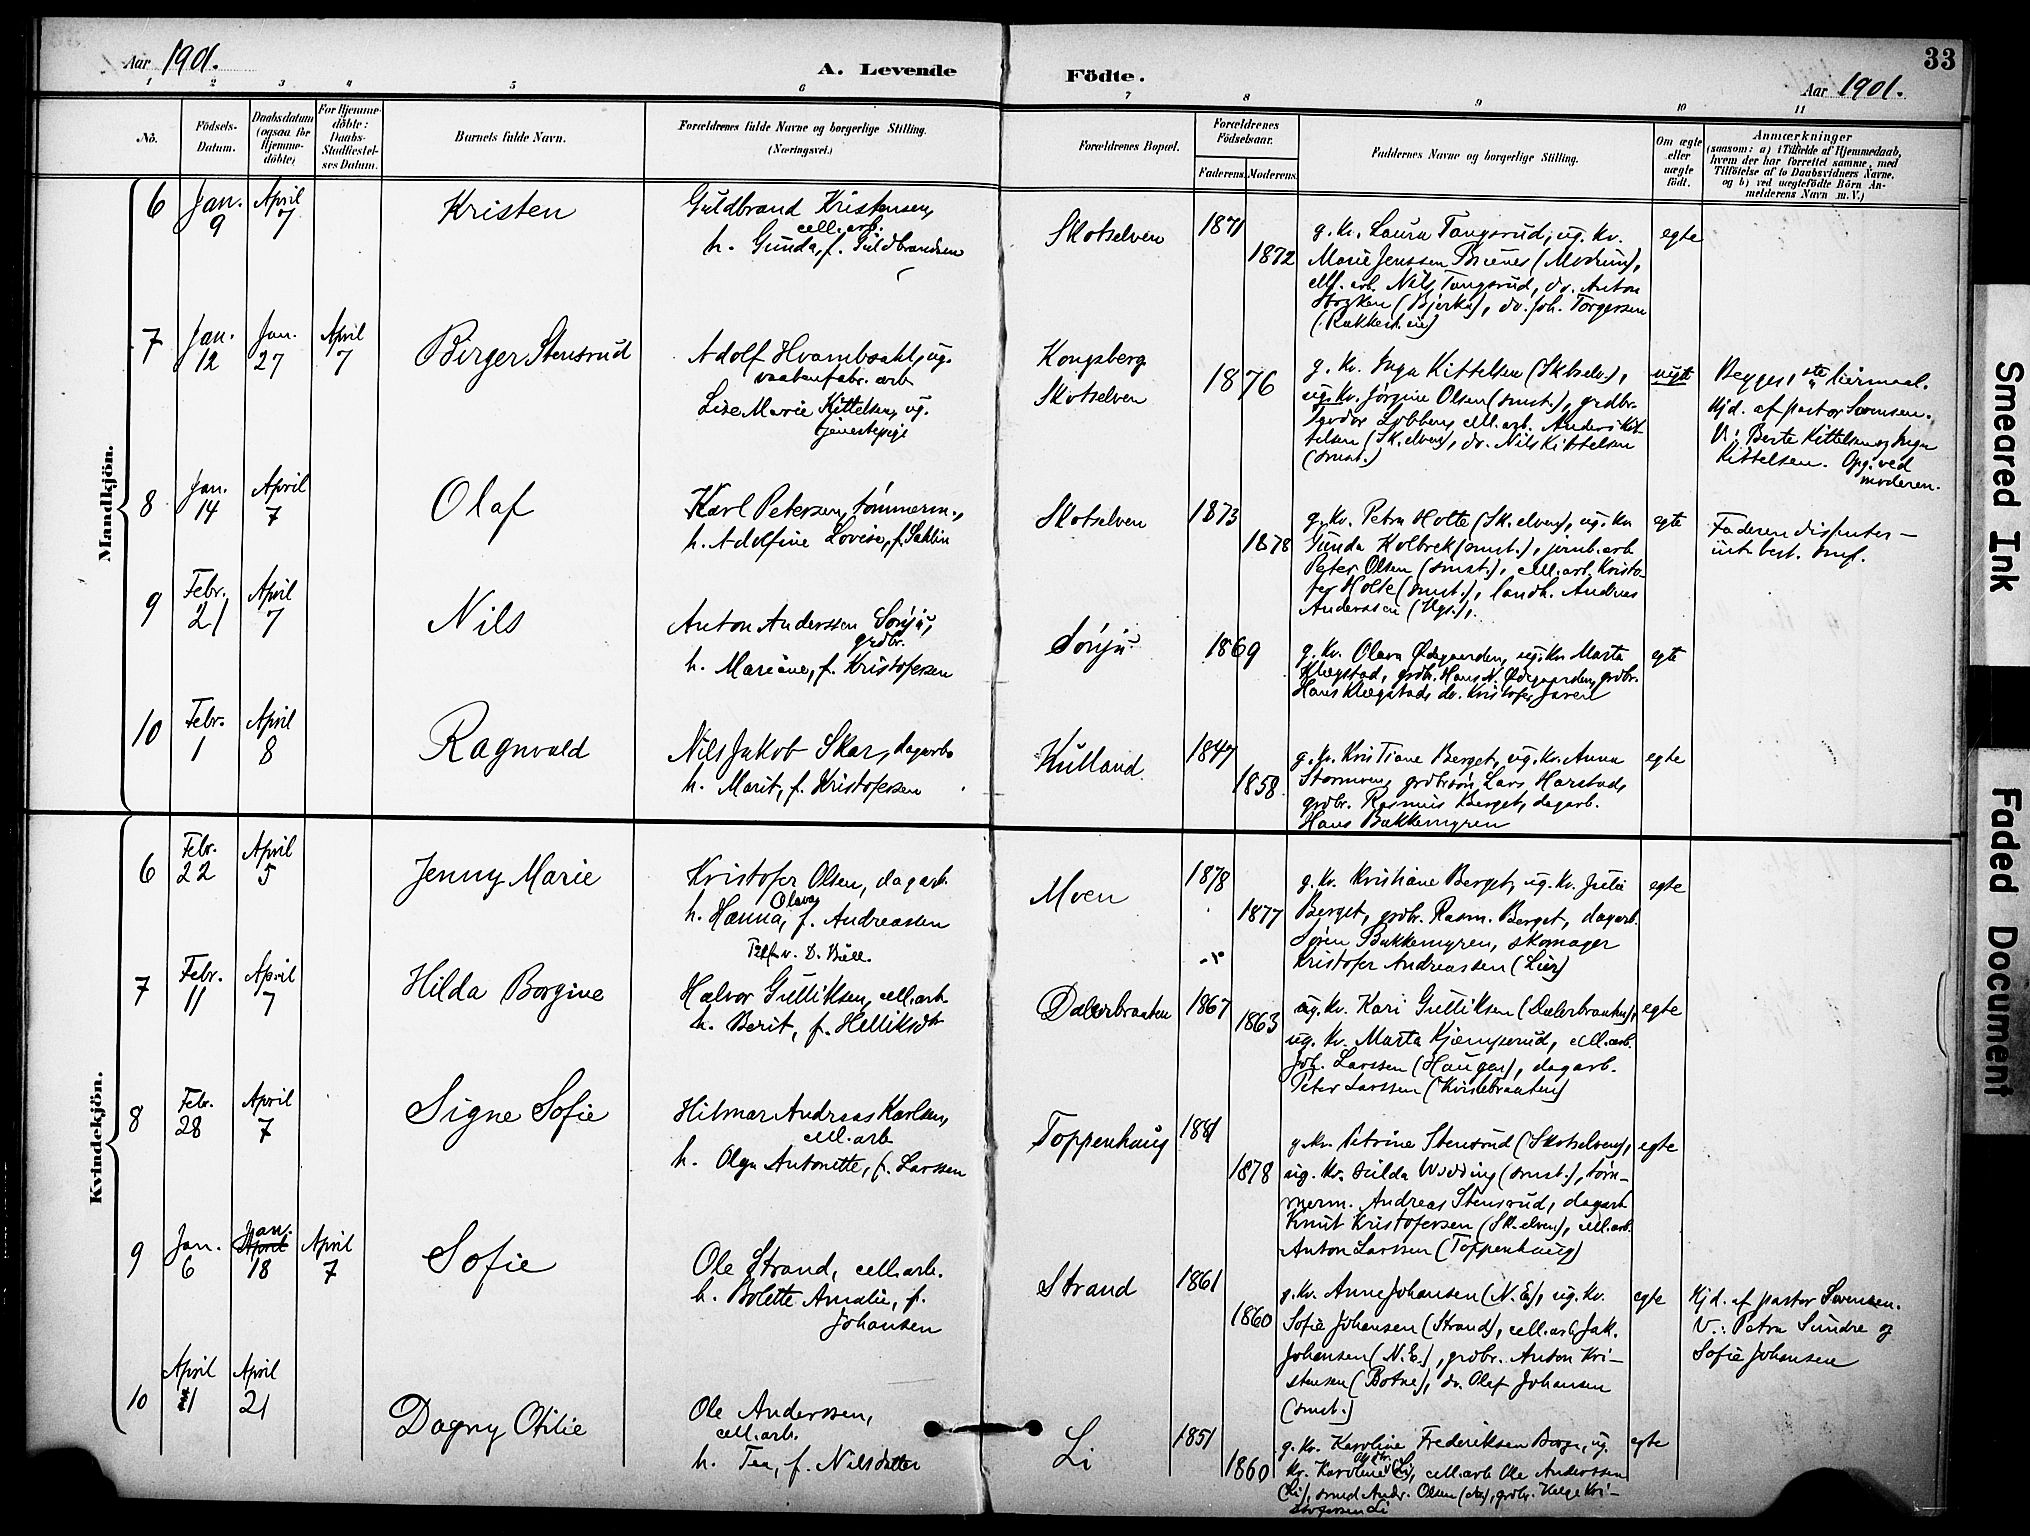 Aar 1901.
A. Levende
Födte.
Aar 1901.
33
1 2 3 4 5 6 7 8 9 10 11
No.
Födsels-
Datum.
Daabsdatum
(ogsaa for
Hjemme-
döbte)
For Hjemme-
döbte:
Daabs-
Stadfæstel-
ses Datum.
Barnets fulde Navn.
Forældrenes fulde Navne og borgerlige Stilling.
(Næringsvei.)
Forældrenes Bopæl.
Forældrenes
Födselsaar.
Faderens. Moderens.
Faddernes Navne og borgerlige Stilling.
Om ægte
eller
uægte
födt.
Anmærkninger
(saasom: a) i Tilfælde af Hjemmedaab,
hvem der har forrettet samme, med
Tilföielse af to Daabsvidners Navne,
og b) ved uægtefödte Börn An-
melderens Navn m. V.)
Mandkjön.
6 Jan. 9 April 7
Kristen
Guldbrand Kristensen,
cell.arb.
h. Gunda, f. Guldbrandsen
Skotselven
1871
1872
g. k. Laura Tangsrud, ug. kv.
Marie Jenssen (Modum),
cell. arb. Nils Tangsrud, do. Anton
do. Joh. Torgersen
egte
7 Jan. 12 Jan. 27 April 7
Birger Stensrud
Adolf Hvambsahl, ug.
vaabenfabr. arb.
Lise Marie Kittelsen, ug.
tjenestepige
Kongsberg
Skotselven
1876
g. kv. Inga Kittelsen (Skotselv.),
ug. kv. Jørgine Olsen (smst.), grdbr.
cell.arb. Anders Kit-
telsen (Sk.elven), do. Nils Kittelsen
(smst.)
uegte
Begges 1ste leiermaal.
Hjd. af pastor Sørensen.
V.: Berte Kittelsen og Inga
Kittelsen. Opg. ved
moderen.
8 Jan. 14 April 7
Olaf
Karl Petersen, tømmerm.,
h. Adolfine Lovise, f. Sahlin
Skotselven
1873
1878
g. kv. Petra Holte (Sk.elven), ug. kv.
Gunda Kolbrek (smst.), jernb.arb.
Peter Olsen (smst.), cell.arb. Kristo-
fer Holte (smst.), landh. Andreas
Anderssen
egte
Faderen dissenter –
9 Febr. 21 April 7
Nils
Anton Anderssen Sønju,
grdbr.
h. Mariane, f. Kristofersen
Sønju
1869
g. kv. Olava Ødegaarden, ug. kv. Marta
Klægstad, grdbr. Hans N. Ødegaarden, grdbr.
Hans Klægstad, do. Kristofer Jaren
egte
10 Febr. 1 April 8
Ragnvald
Nils Jakob Skar, dagarb.
h. Marit, f. Kristofersen
Kulland
1847
1858
g. kv. Kristiane Berget, ug. kv. Anna
grdbrsøn Lars Harstad,
grdbr. Rasmus Berget, dagarb.
Hans Bakkemyren
egte
Kvindekjön.
6 Febr. 22 April 5
Jenny Marie
Kristofer Olsen, dagarb.
Olava
h. Hanna, f. Andreassen
Moen
1878
1877
g. kv. Kristiane Berget, ug. kv. Julie
Berget, grdbr. Rasm. Berget, dagarb.
Søren Bakkemyren, skomager
Kristofer Andreassen (Lier)
egte
7 Febr. 11 April 7
Hilda Borgine
Halvor Gulliksen, cell.arb.
h. Berit, f. Helliksdtr.
Dælerbraaten
1867
1863
ug. kv. Kari Gulliksen (Dælerbraaten),
ug. kv. Marta Kjæmperud, cell.arb.
Joh. Larssen (Haugen), dagarb.
Peter Larssen (Kvislebraaten)
egte
8 Febr. 28 April 7
Signe Sofie
Hilmar Andreas Karlsen,
cell.arb.
h. Olga Antonette, f. Larssen
Toppenhaug
1881
1878
g. kv. Petrine Stensrud (Skotselven),
ug. kv. Hilda Wedding (smst.), tøm-
merm. Andreas Stensrud, dagarb.
Knut Kristofersen (Sk.elven), cell.arb.
Anton Larssen (Toppenhaug)
egte
9 Jan. 6 Jan. 18 April 7
Sofie
Ole Strand, cell.arb.
h. Bolette Amalie, f.
Johansen
Strand
1861
1860
g. kv. Anne Johansen (N.E.), ug. kv.
Sofie Johansen (Strand), cell.arb. Jak.
Johansen (N.E.), grdbr. Anton Kri-
stensen (Botne), do. Olaf Johansen
(smst.)
egte
Hjd. af pastor Sørensen.
V.: Petra Sundre og
Sofie Johansen
10 April 11 April 21
Dagny Otilie
Ole Anderssen,
cell.arb.
h. Tea, f. Nilsdatter
Li
1851
1860
g. kv. Karoline Frederiksen Borge, ug.
kv. Karoline (Li), cell.arb. Ole Anderssen
(Li), smed Andr. Olsen grdbr. Helge Kri-
stofersen Li
egte
Smeared Ink
Faded Document